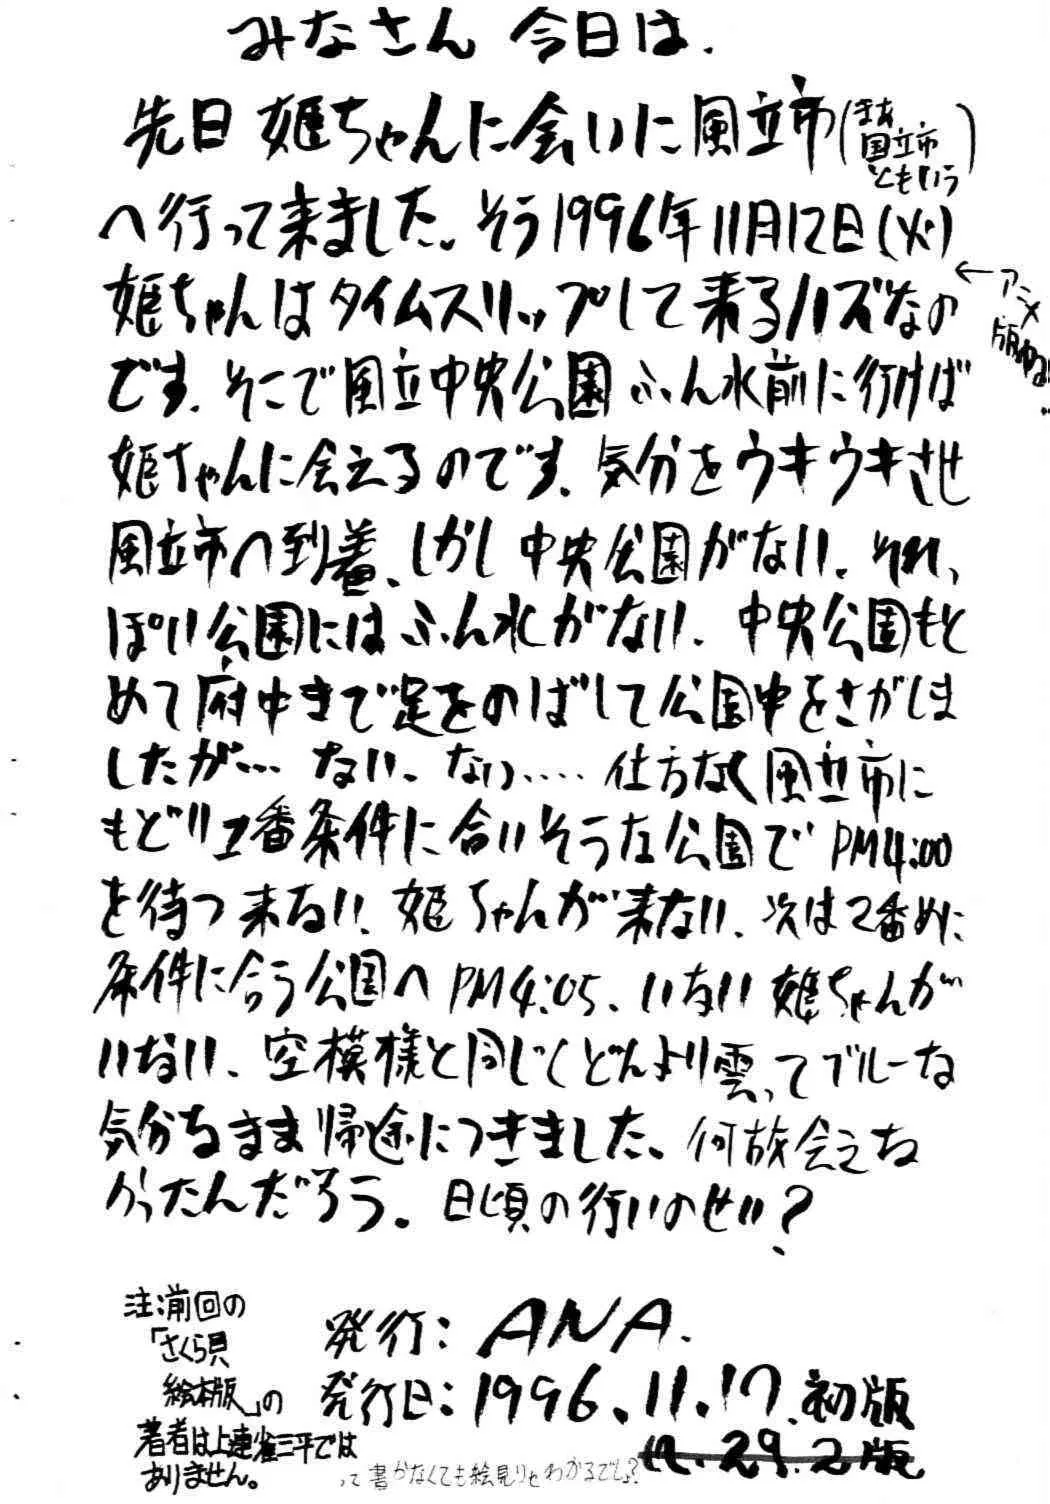 みなさん 今日は.
先日 姫ちゃんに会いに風立市(まあ国立市ともいう)
へ行って来ました。そう1996年11月12日(火)
←アニメ版ね
姫ちゃんはタイムスリップして来るハズなの
です. そこで風立中央公園 ふん水前に行けば
姫ちゃんに会えるのです、気分をウキウキさせ
風立市へ到着、しかし中央公園がない、それっ
ぽい公園にはふん水がない、中央公園もと
めて府中まで足をのばして公園中をさがしま
したが… ない、ない…‥ 仕方なく風立市に
もどり1番条件に合いそうな公園でPM4:00
を待つ来ない、姫ちゃんが来ない、次は2番めに
条件に合う公園へPM4:05、いない姫ちゃんが
いない、空模様と同じくどんより雲ってブルーな
気分なまま帰途につきました、何故会えな
かったんだろう。日頃の行いのせい?
注:前回の
「さくら貝
絵本版」の
著者は上連雀三平では
ありません。
発行:ANA.
発行日:1996.11.17.初版
12.29.2版
って書かなくても絵見りゃわかるでしょ?